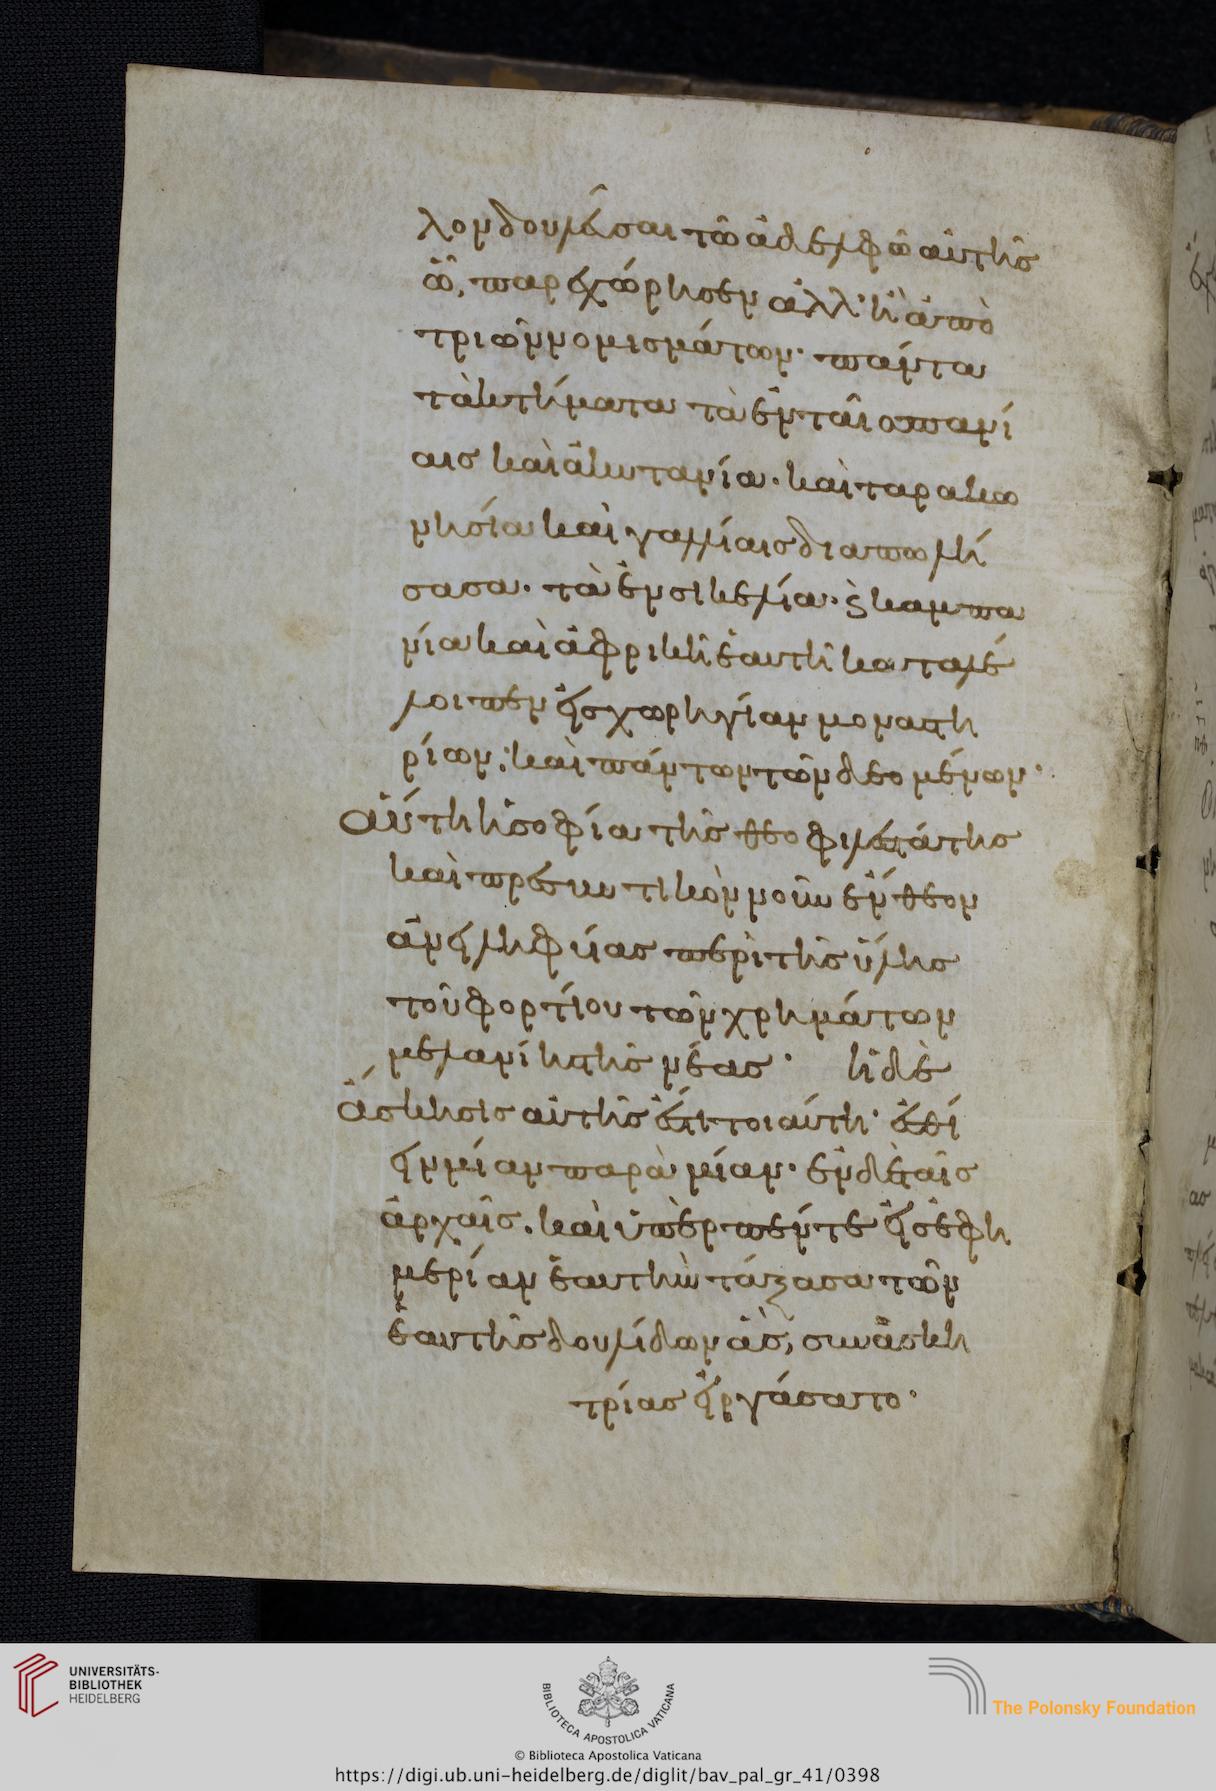 λον δουλεῦσαι τῶ ἀδελφῶ αὐτῆς
ὧ, παρεχώρησεν ἀλλ' ἢ ἀπὸ
τριῶν νομισμάτων· πάντα
τὰ κτήματα τὰ ἐν ταῖς σπανί
αις καὶ ἀκυτανία· καὶ ταρακω
νησία καὶ γαλλίαις διαπωλή
σασα· τὰ ἐν σικελία· καμπα
νία καὶ ἀφρικῆ ἑαυτῆ καταλέ
λοιπεν εἰς χωρηγίαν μοναστη
ρίων· καὶ πάντων τῶν δεομένων·
αὕτη ἡ σοφία τῆς θεοφιλεστάτης
καὶ πρεσβυτικὸν νοῦν ἔνθεον
ἀνειληφυίας περὶ τῆς ὕλης
τοῦ φορτίου τῶν χρημάτων
μελανίης τῆς νέας· ἡ δὲ
ἄσκησις αὐτῆς ἔστι τοιαύτη· ἐσθί
ει μίαν παρὰ μίαν· ἐν δὲ ταῖς
ἀρχαῖς· καὶ ὑπὲρ πέντε εἰς ἐφη
μερίαν ἑαυτὴν τάξασα τῶν
ἑαυτῆς δουλίδων ἃς, συνασκη
τρίας εἰργάσατο·
UNIVERSITÄTS-
BIBLIOTHEK
HEIDELBERG
BIBLIOTECA APOSTOLICA VATICANA
The Polonsky Foundation
© Biblioteca Apostolica Vaticana
https://digi.ub.uni-heidelberg.de/diglit/bav_pal_gr_41/0398